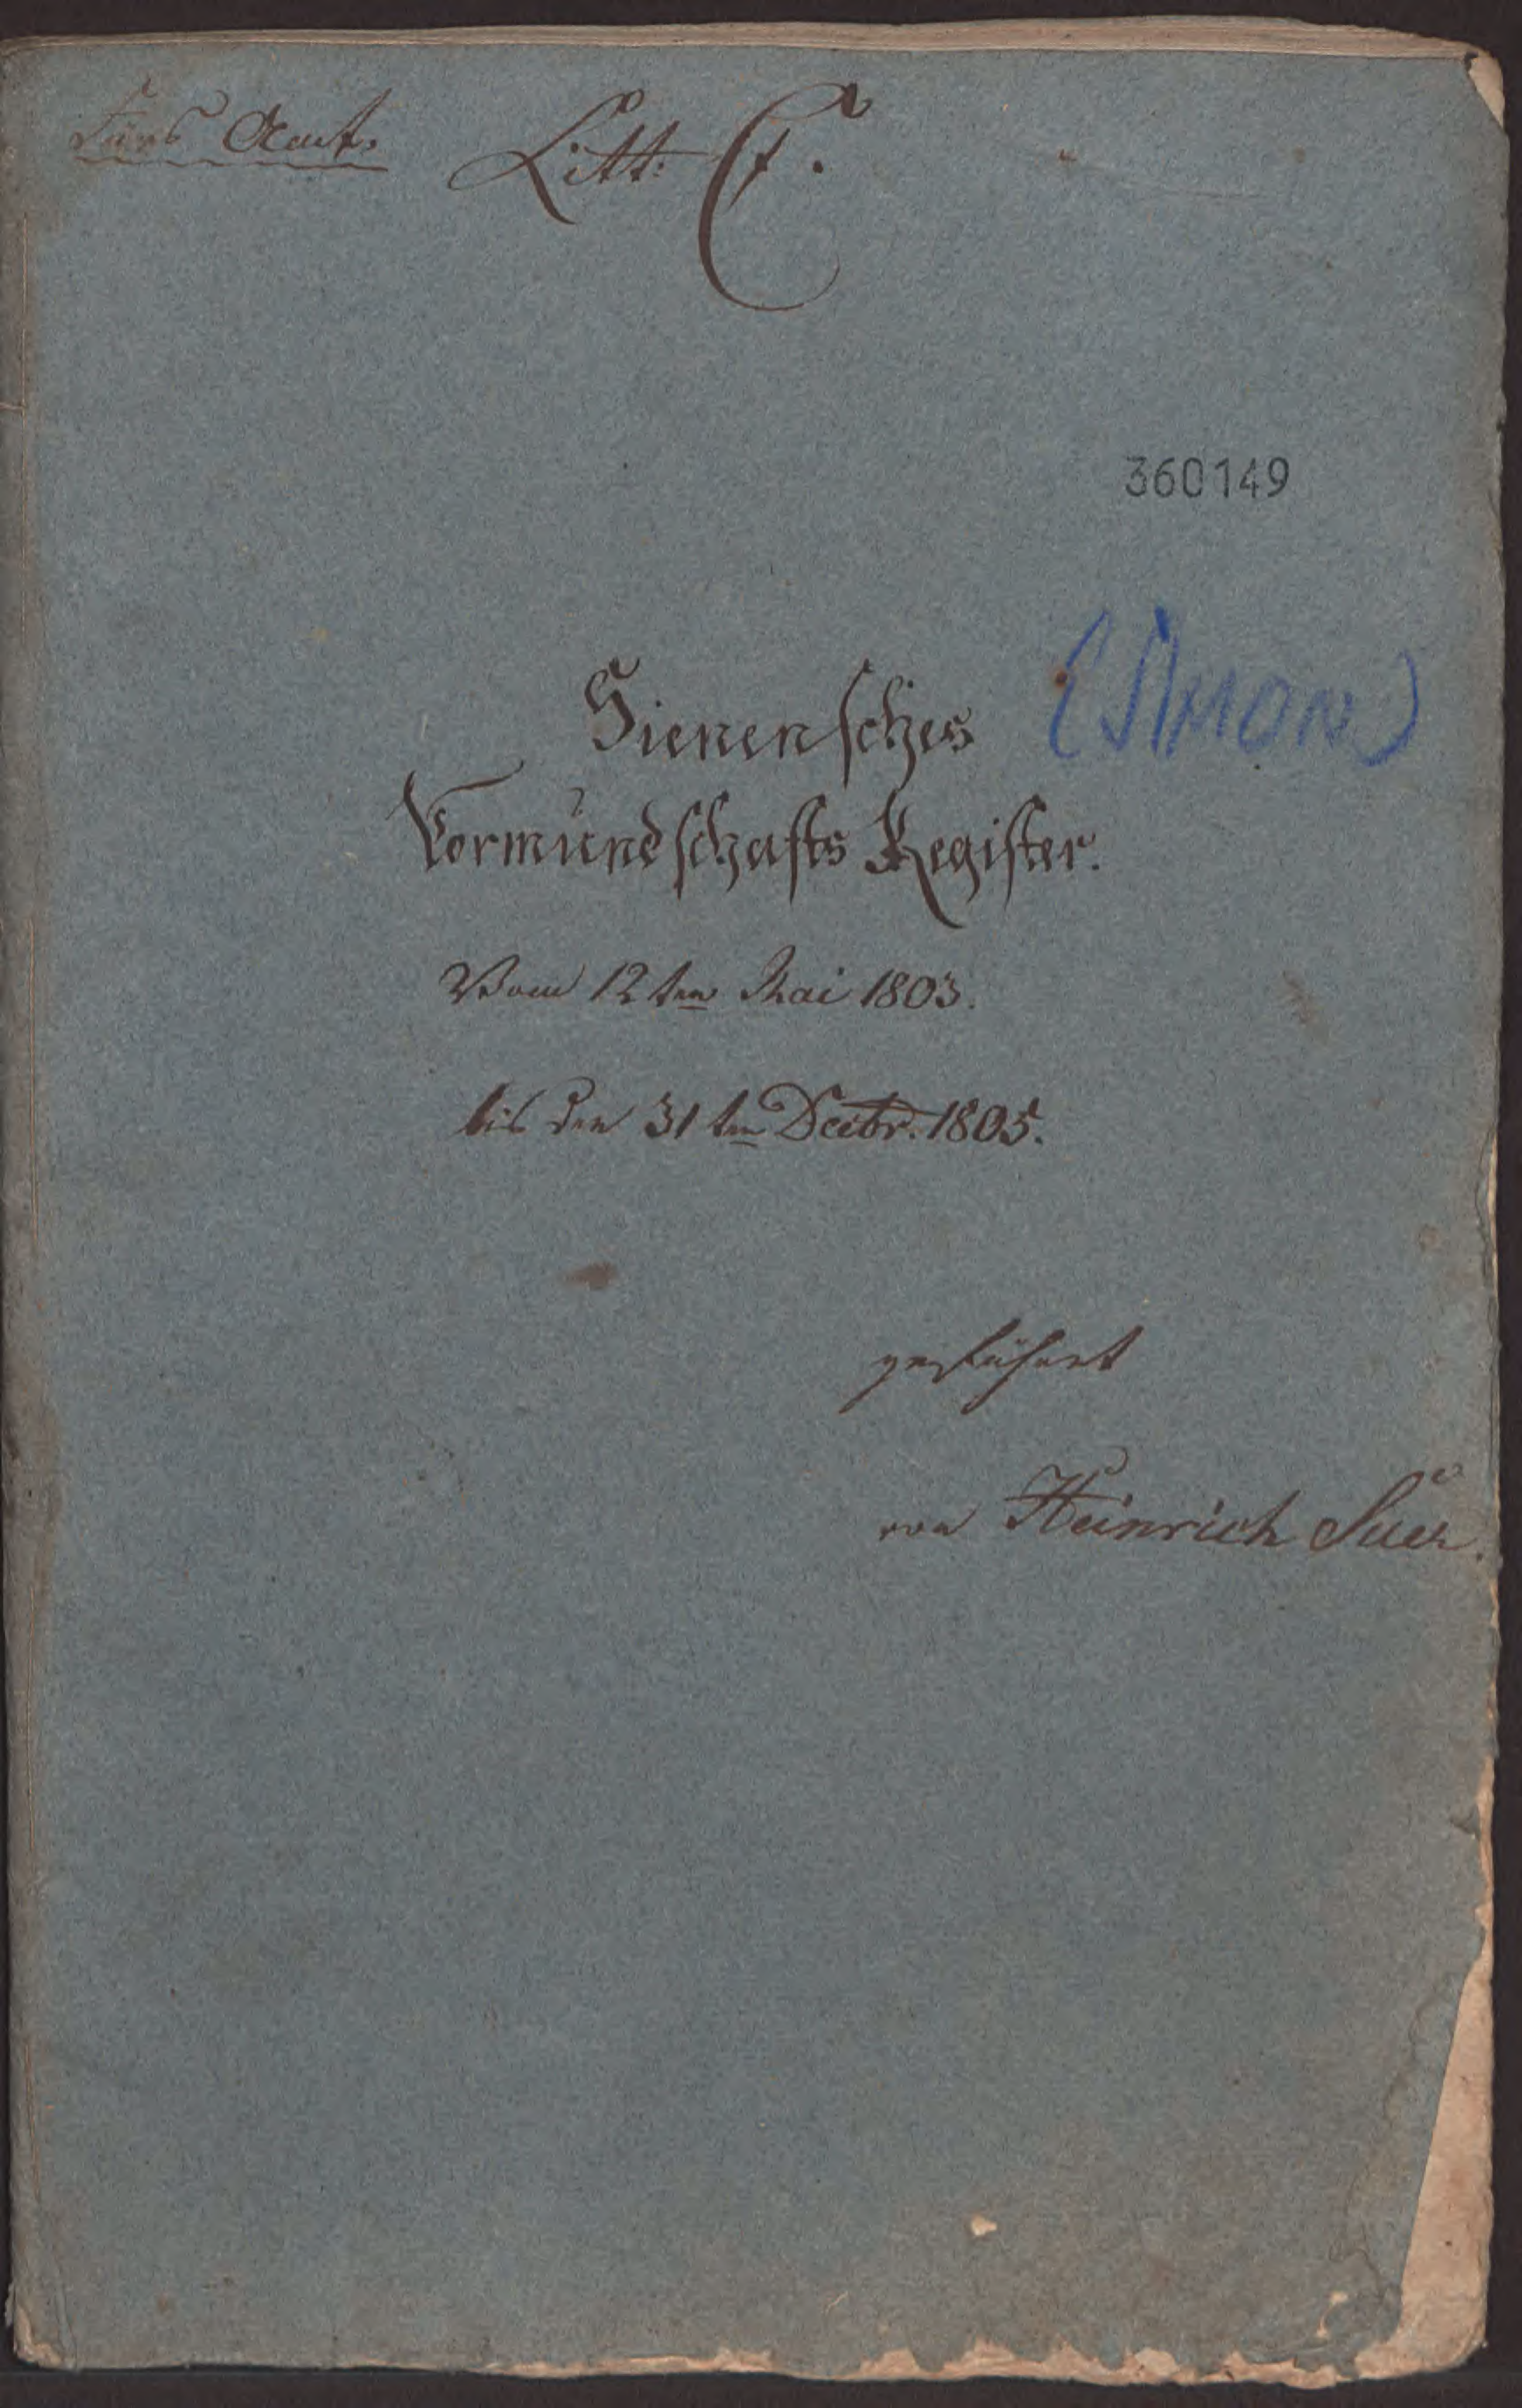 Fürs Amt. Litt: C.
360149
Sienensches (SIMON)
Vormundschafts Register.
Vom 12ten Mai 1803.
bis den 31ten Decbr. 1805.
geführt
von Heinrich Suer.